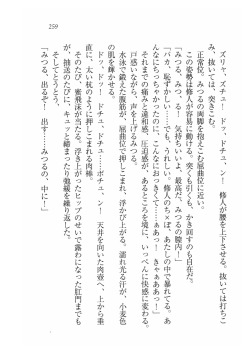 259
ズリャ、ズチュ、ドッ、ドチュ、ン！　修人が腰を上下させる。抜いては打ちこみ、抜いては、突きこむ。
正常位、みつるの両脚を抱えこむ屈曲位に近い。
この姿勢は修人が容易に動ける。突くも引くも、かき回すのも自在だ。
「みつる、みつ、る！　気持ちいいよ、最高だ、みつるの膣内！」
「バカ、恥ずかしい……でも、うれしい。修人のち×ぽあたしの中で暴れてる。あんなに小っちゃかったのに、こんなにおっきくて……ぁぁあっ！　きゃああああ」
それまでの痛みと違和感、圧迫感が、あるところを境に、いっぺんに快感に変わる。
戸惑いながら、声を上げるみつる。
水泳で鍛えた腹筋が、屈曲位で押しこまれ、浮かび上がる。濡れ光る汗が、小麦色の肌を輝かせる。
ドッ、ドドッ、ドチュ、ドチュ……ボチュ、ン！　天井を向いた肉壺へ、上から垂直に、太い杭のように押しこまれる肉棒。
そのたび、蜜飛沫が当たる。浮き上がったヒップのせいで露わになった肛門までもが、抽送のたびに、キュッと締まったり弛緩を繰り返した。
そしてとうとう、
「みつる、出るぞ！　出す……みつるの、中に！」